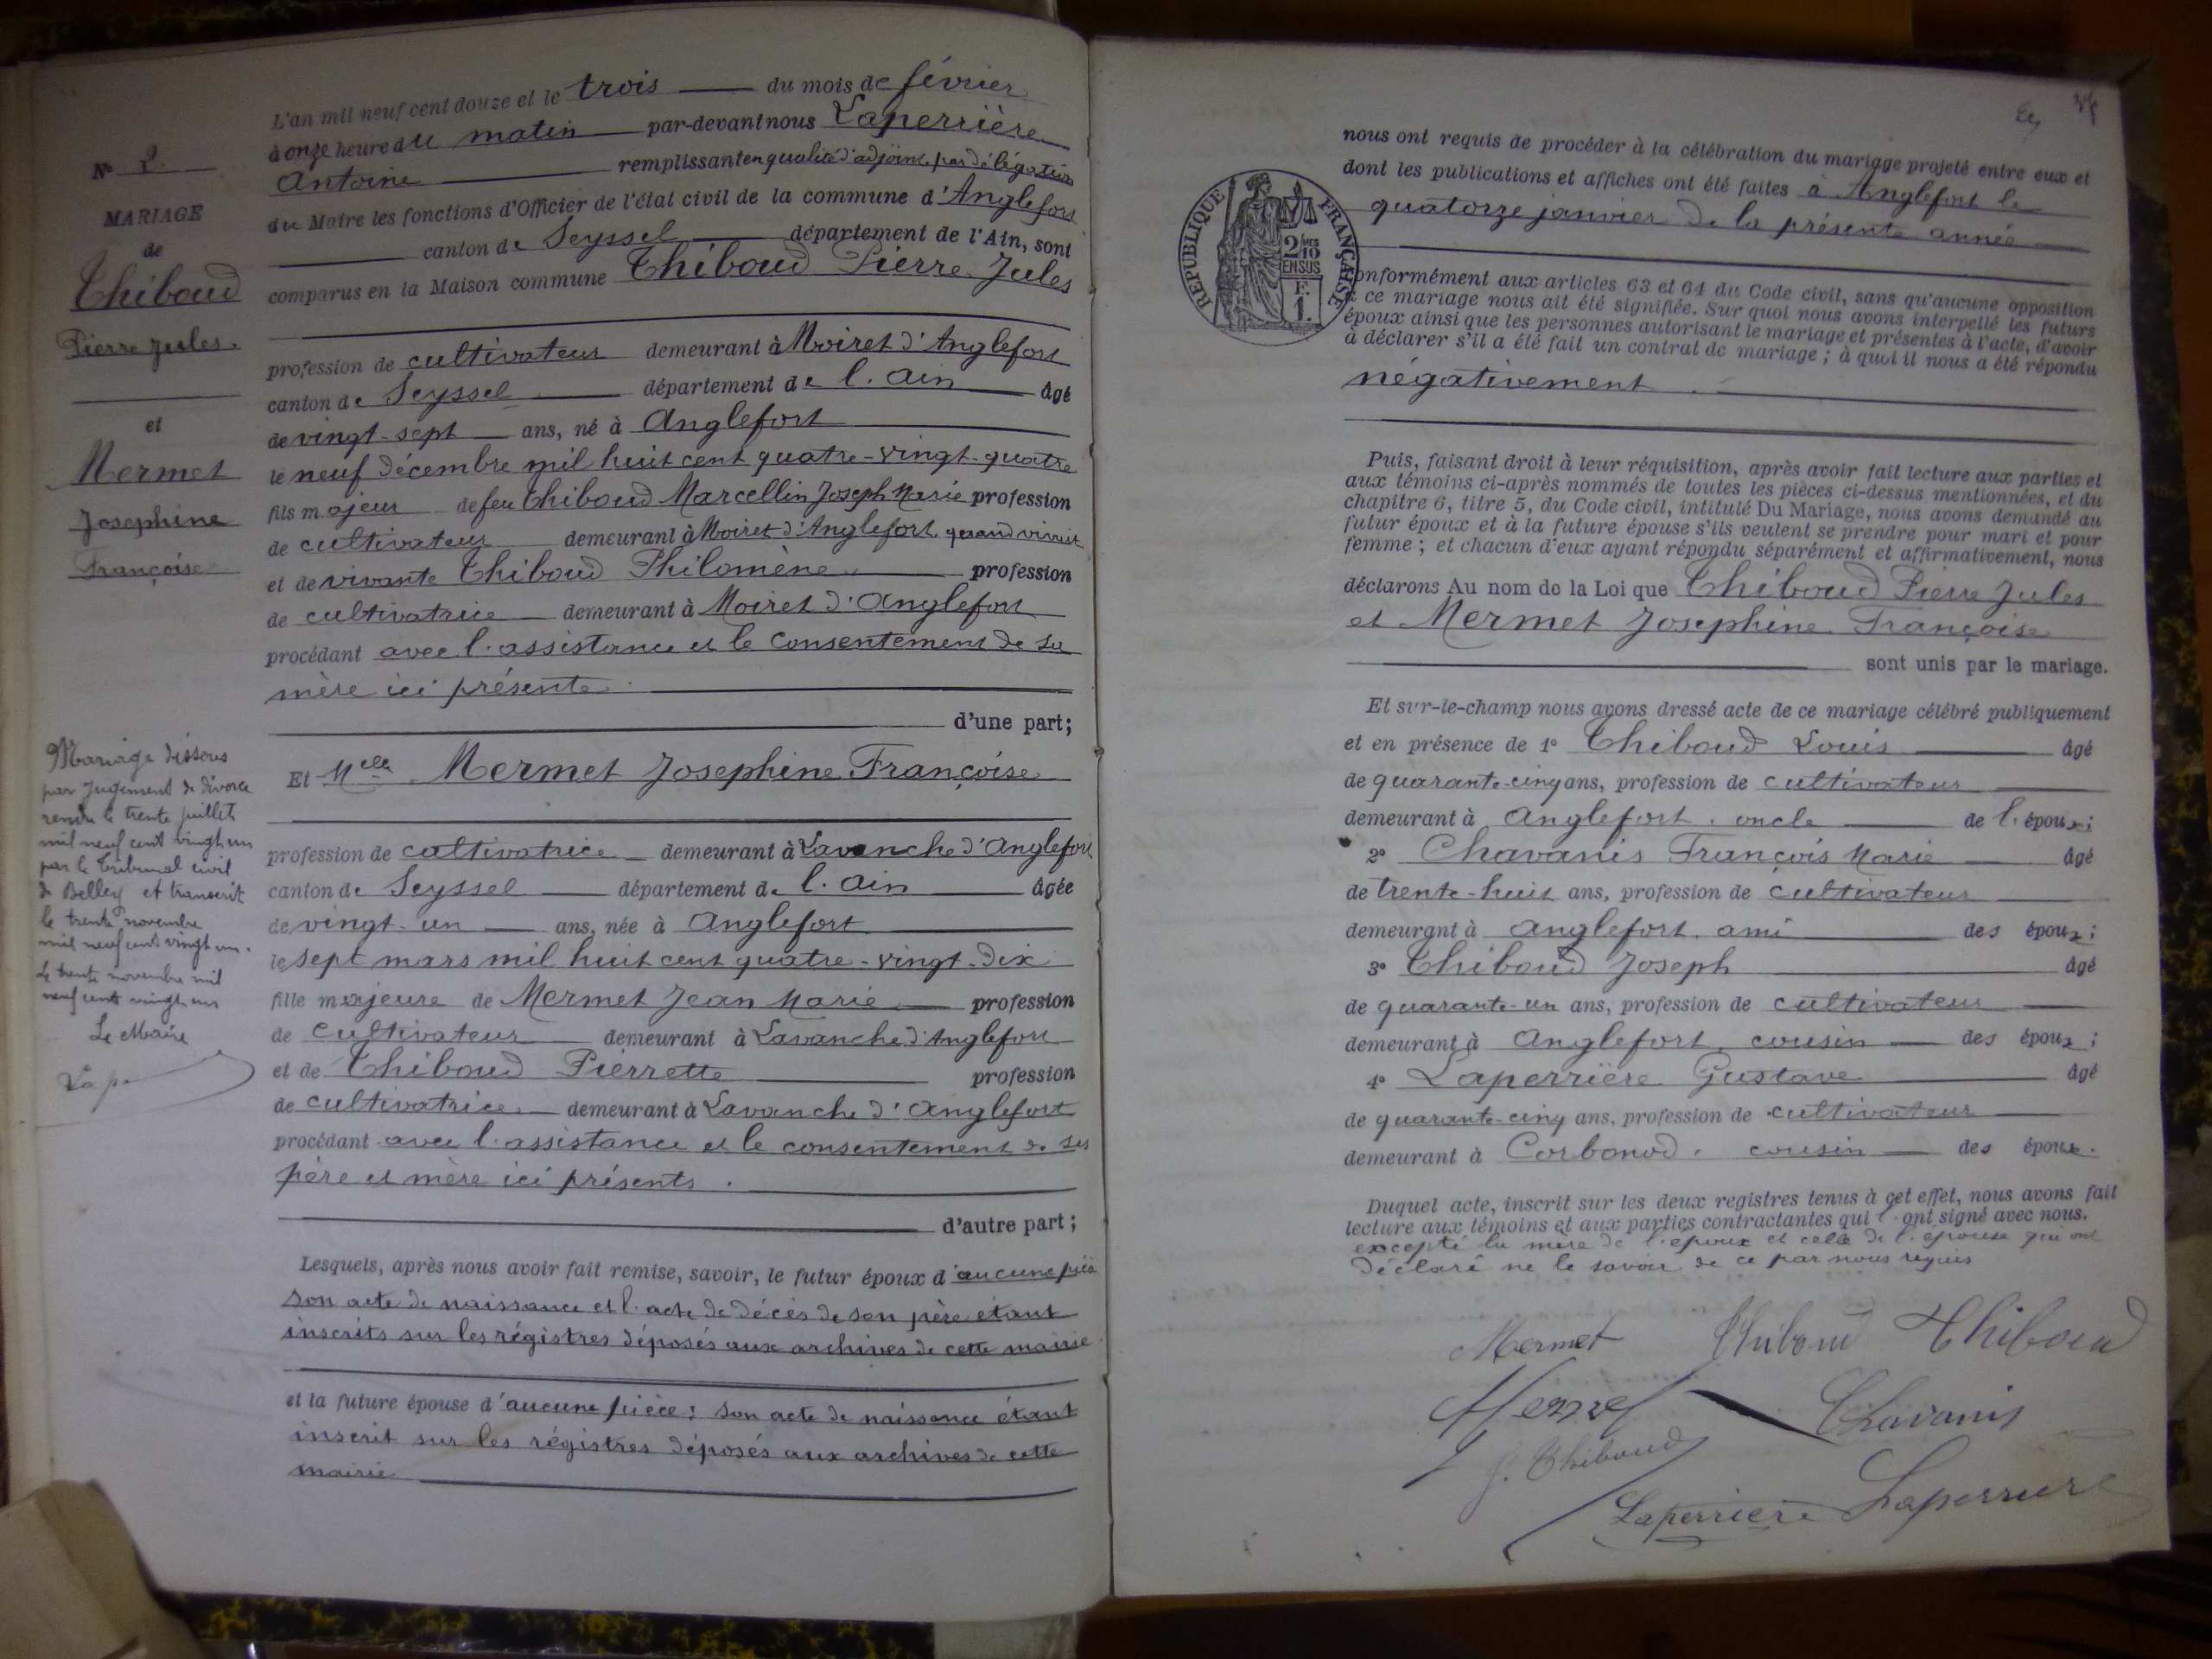 N° 2
MARIAGE
de
Thiboud
Pierre Jules.
et
Mermet
Josephine
Françoise
Mariage dissous
par Jugement de divorce
rendu le trente juillet
mil neuf cent vingt un
par le Tribunal civil
de Belley et transcrit
le trente novembre
mil neuf cent vingt un.
Le trente novembre mil
neuf cent vingt un
Le Maire
L'an mil neuf cent douze et le trois du mois de février
à onze heure du matin par-devant nous Laperrière
Antoine remplissant en qualité d'adjoint par délégation
du Maire les fonctions d'Officier de l'état civil de la commune d'Anglefort
canton de Seyssel département de l'Ain, sont
comparus en la Maison commune Thiboud Pierre Jules
profession de cultivateur demeurant à Moiret d'Anglefort
canton de Seyssel département de l'Ain âgé
de vingt-sept ans, né à Anglefort
le neuf décembre mil huit cent quatre-vingt-quatre
fils majeur de feu Thiboud Marcellin Joseph Marie profession
de cultivateur demeurant à Moiret d'Anglefort quand vivait
et de vivante Thiboud Philomène profession
de cultivatrice demeurant à Moiret d'Anglefort
procédant avec l'assistance et le consentement de sa
mère ici présente.
d'une part;
Et Melle Mermet Josephine Françoise
profession de cultivatrice demeurant à Lavanche d'Anglefort
canton de Seyssel département de l'Ain âgée
de vingt-un ans, née à Anglefort
le sept mars mil huit cent quatre-vingt-dix
fille majeure de Mermet Jean Marie profession
de cultivateur demeurant à Lavanche d'Anglefort
et de Thiboud Pierrette profession
de cultivatrice demeurant à Lavanche d'Anglefort
procédant avec l'assistance et le consentement de ses
père et mère ici présents.
d'autre part;
Lesquels, après nous avoir fait remise, savoir, le futur époux d'aucune pièce
son acte de naissance et l'acte de décès de son père étant
inscrits sur les régistres déposés aux archives de cette mairie
et la future épouse d'aucune pièce: son acte de naissance étant
inscrit sur les régistres déposés aux archives de cette
mairie
REPUBLIQUE FRANÇAISE
2/10MES
EN SUS
F.
1.
nous ont requis de procéder à la célébration du mariage projeté entre eux et
dont les publications et affiches ont été faites à Anglefort le
quatorze janvier de la présente année
conformément aux articles 63 et 64 du Code civil, sans qu'aucune opposition
à ce mariage nous ait été signifiée. Sur quoi nous avons interpellé les futurs
époux ainsi que les personnes autorisant le mariage et présentes à l'acte, d'avoir
à déclarer s'il a été fait un contrat de mariage; à quoi il nous a été répondu
négativement.
Puis, faisant droit à leur réquisition, après avoir fait lecture aux parties et
aux témoins ci-après nommés de toutes les pièces ci-dessus mentionnées, et du
chapitre 6, titre 5, du Code civil, intitulé Du Mariage, nous avons demandé au
futur époux et à la future épouse s'ils veulent se prendre pour mari et pour
femme; et chacun d'eux ayant répondu séparément et affirmativement, nous
déclarons Au nom de la Loi que Thiboud Pierre Jules
et Mermet Josephine Françoise
sont unis par le mariage.
Et sur-le-champ nous avons dressé acte de ce mariage célébré publiquement
et en présence de 1° Thiboud Louis âgé
de quarante-cinq ans, profession de cultivateur
demeurant à Anglefort. oncle de l'époux;
2° Chavanis François Marie âgé
de trente-huit ans, profession de cultivateur
demeurant à Anglefort. ami des époux;
3° Thiboud Joseph âgé
de quarante-un ans, profession de cultivateur
demeurant à Anglefort, cousin des époux;
4° Laperrière Gustave âgé
de quarante-cinq ans, profession de cultivateur
demeurant à Corbonod. cousin des époux.
Duquel acte, inscrit sur les deux registres tenus à cet effet, nous avons fait
lecture aux témoins et aux parties contractantes qui l'ont signé avec nous.
excepté la mère de l'époux et celle de l'épouse qui ont
déclaré ne le savoir de ce par nous requis
Mermet Thiboud Thiboud
Mermet Chavanis
J. Thiboud
Laperrière Laperrière